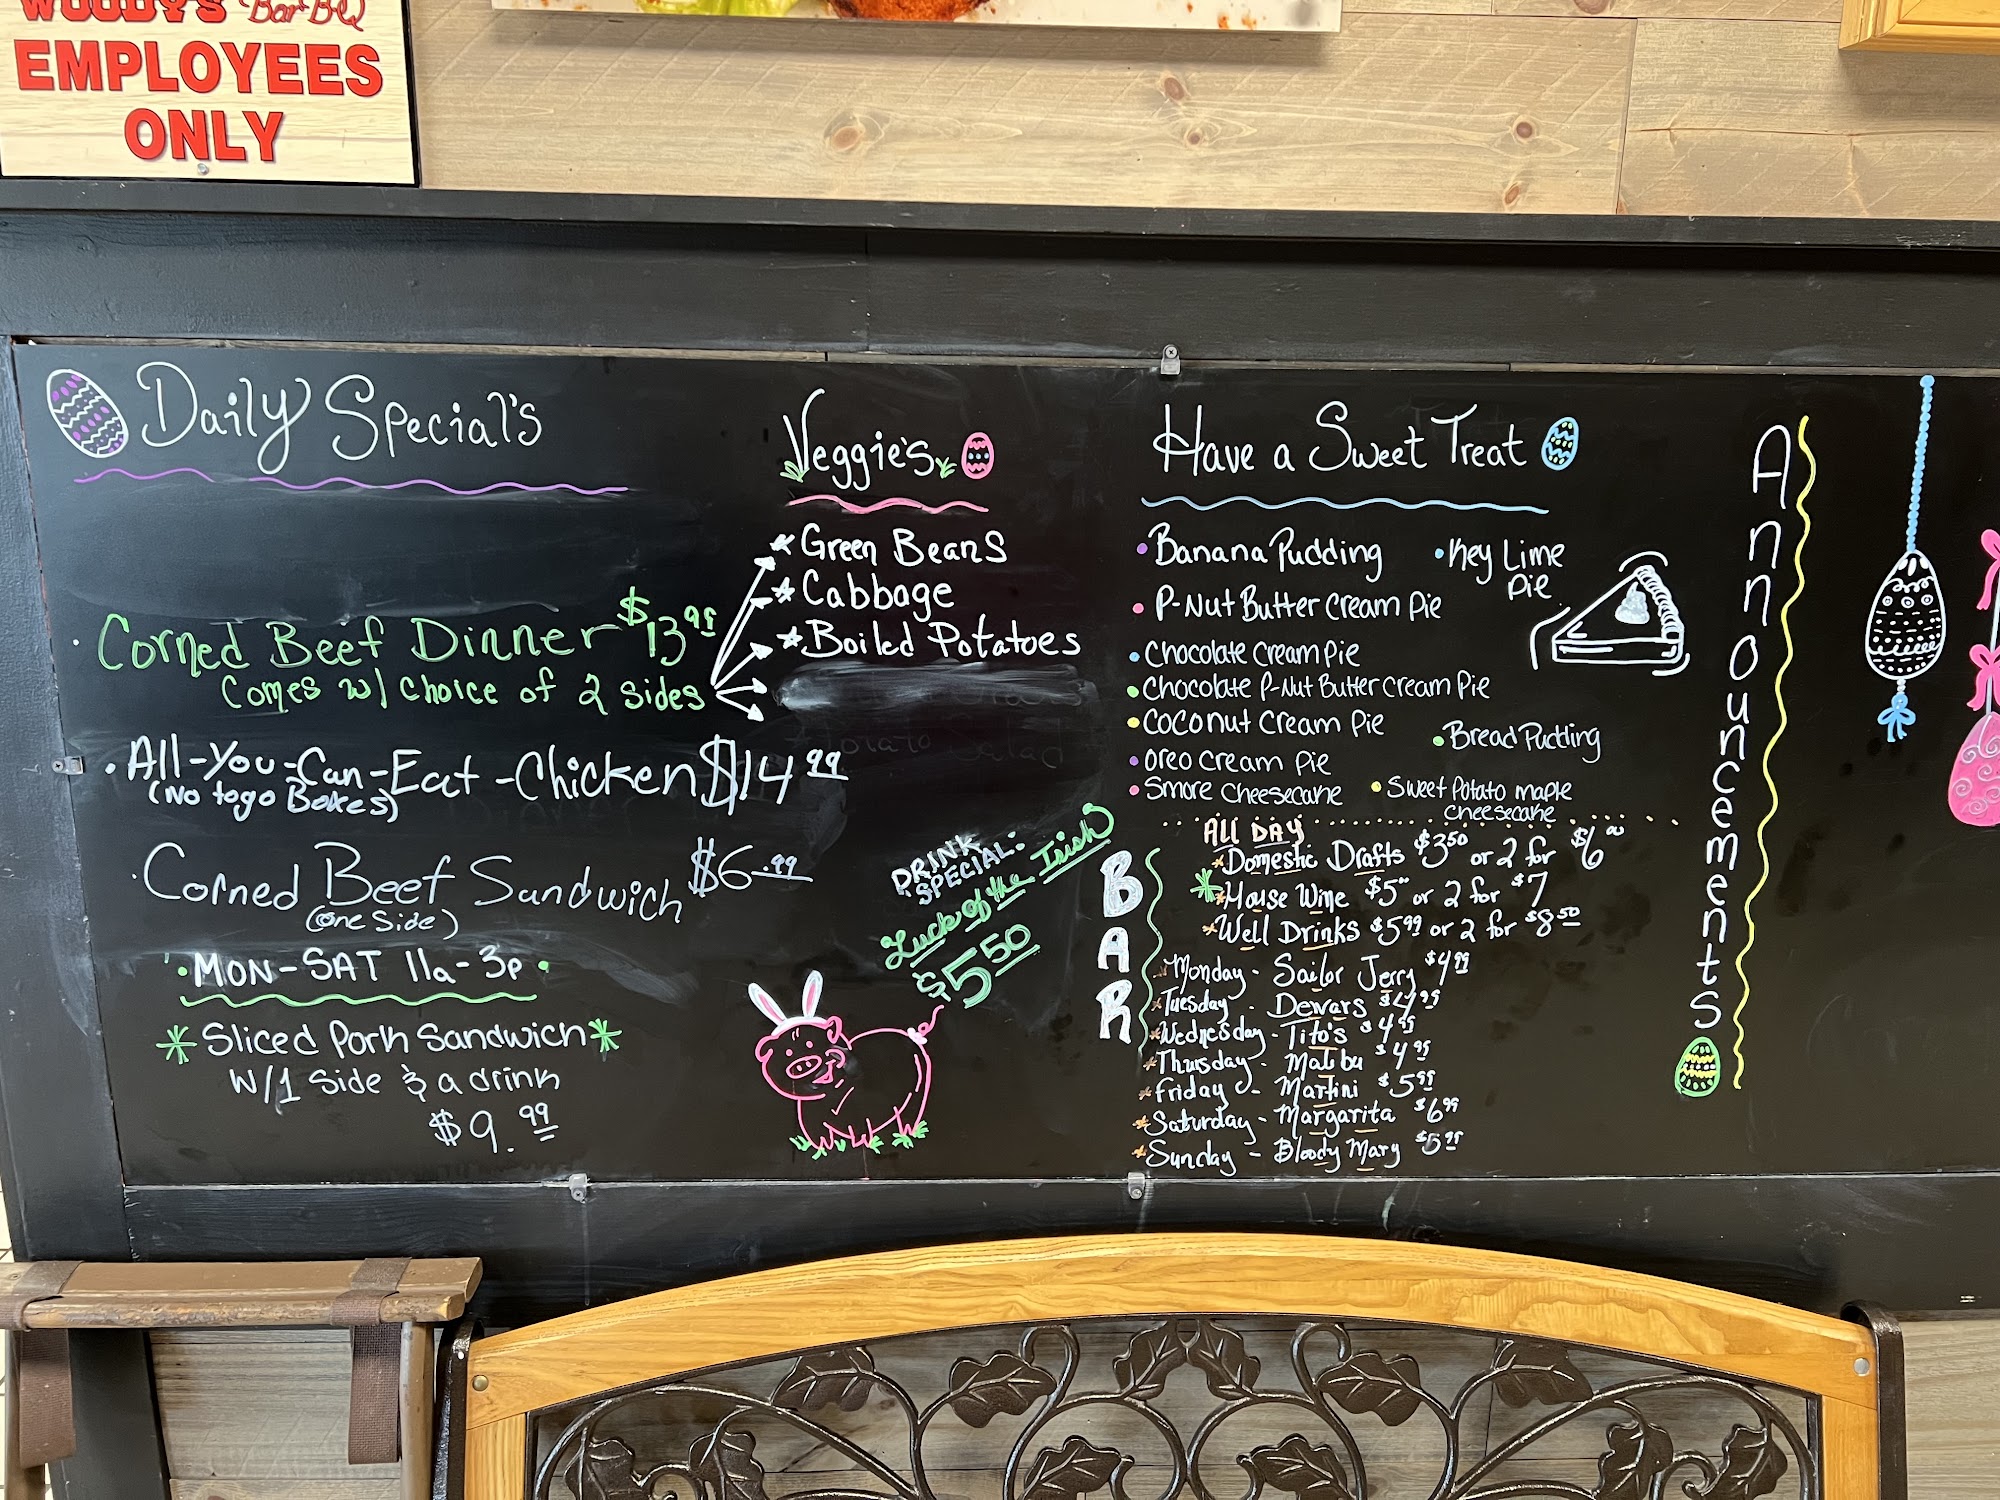 WOODY'S Bar-B-Q
EMPLOYEES
ONLY
Daily Special's
Corned Beef Dinner $13.99
Comes w/ choice of 2 sides
All-You-Can-Eat-Chicken $14.99
(No togo Boxes)
Corned Beef Sandwich $6.99
(one side)
MON-SAT 11a-3p
Sliced Pork Sandwich
w/1 side & a drink
$9.99
Veggie's
Green Beans
Cabbage
Boiled Potatoes
DRINK
SPECIAL:
Luck of the Irish
$5.50
Have a Sweet Treat
Banana Pudding
Key Lime
Pie
P-Nut Butter Cream Pie
Chocolate Cream Pie
Chocolate P-Nut Butter Cream Pie
Coconut Cream Pie
Bread Pudding
Oreo Cream Pie
Smore Cheesecake
Sweet Potato maple
Cheesecake
BAR
ALL DAY
Domestic Drafts $3.50 or 2 for $6.00
House Wine $5.00 or 2 for $7
Well Drinks $5.99 or 2 for $8.50
Monday - Sailor Jerry $4.99
Tuesday - Dewars $4.99
Wednesday - Tito's $4.99
Thursday - Malibu $4.99
Friday - Martini $5.99
Saturday - Margarita $6.99
Sunday - Bloody Mary $5.99
Announcements